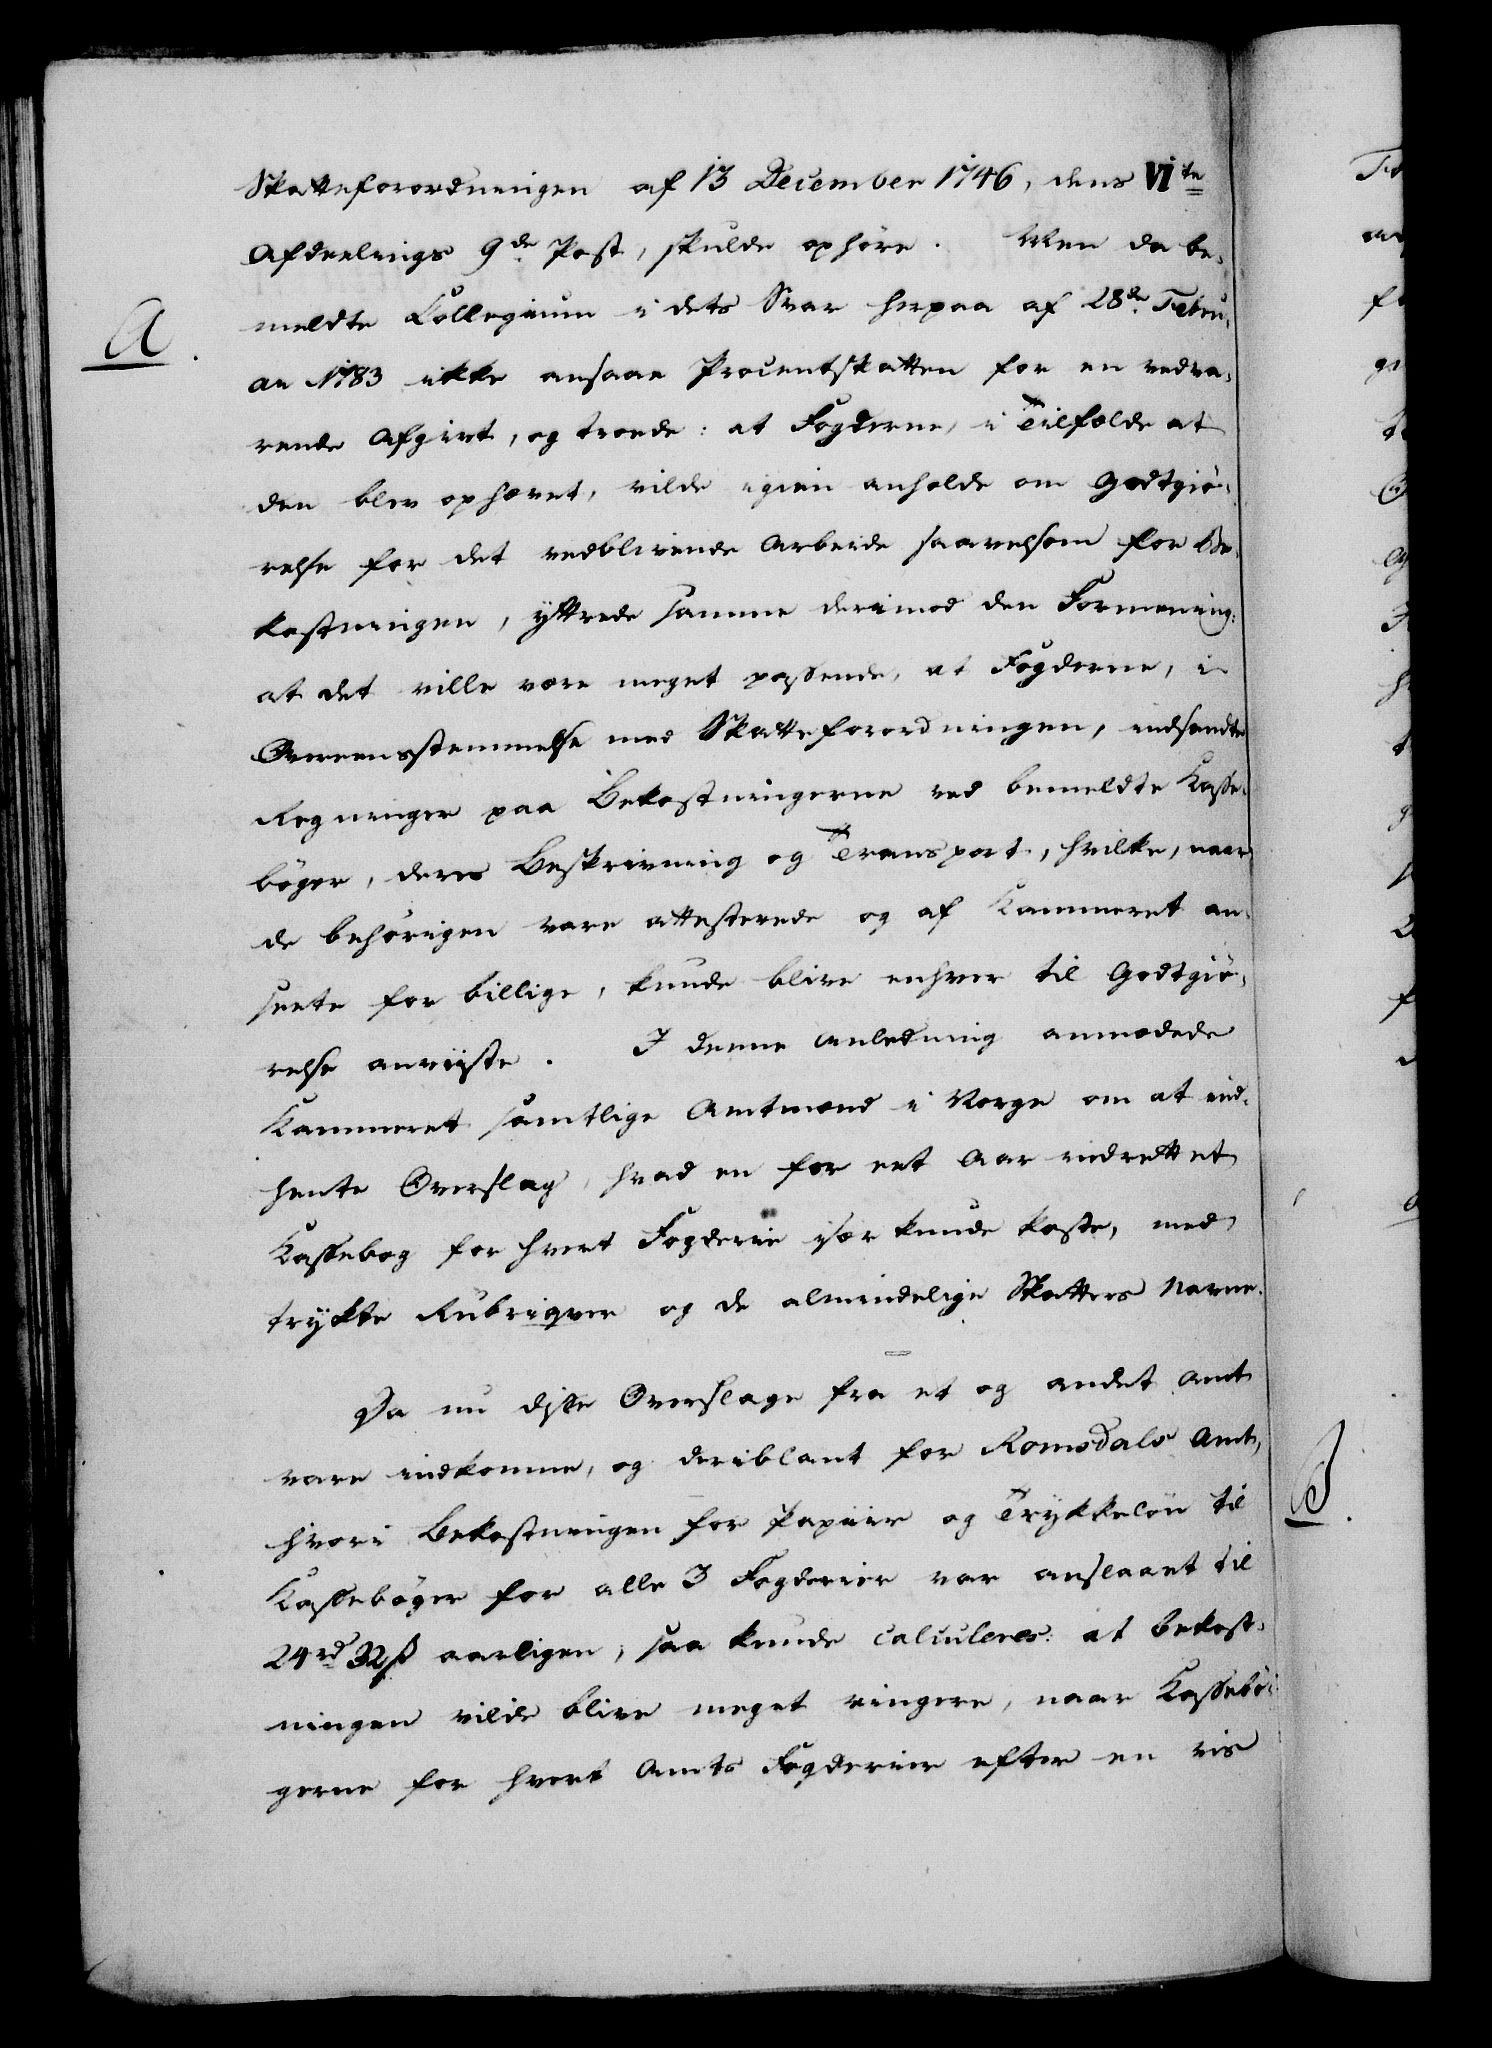 Skatteforordningen af 13 December 1746, dens VI<sup>te</sup>
Afdeelings 9<sup>de</sup> Post, skulde ophöre. Men da be-
meldte Collegium i dets Svar herpaa af 28<sup>de</sup> Febru-
A.
ar 1783 ikke ansaae Procentskatten for en vedva-
rende Afgivt, og troede: at Fogderne, i Tilfælde at
den blev ophævet, vilde igien anholde om Godtgiö-
relse for det vedblivende Arbeide saavelsom for Be-
kostningen, yttrede samme derimod den Formening:
at det ville være meget passende, at Fogderne, i
Overeensstemmelse med Skatteforordningen, indsendte
Regninger paa Bekostningerne ved bemeldte Kasse-
böger, deres Beskrivning og Transport, hvilke, naar
de behörigen vare attesterede og af Kammeret an-
seete for billige, kunde blive enhver til Godtgiö-
relse anviiste. I denne Anledning anmodede
Kammeret samtlige Amtmænd i Norge om at ind-
hente Overslag, hvad en for eet Aar indrettet
Kassebog for hvert Fogderie især kunde koste, med
trykte Rubriqver og de almindelige Skatters Navne.
Da nu disse Overslage fra et og andet Amt
vare indkomne, og deriblant for Romsdals Amt,
hvori Bekostningen for Papiir og Trykkelön til
B.
Kasseböger for alle 3 Fogderier var anslaaet til
24 rd 32 ß aarligen, saa kunde calculeres: at Bekost-
ningen vilde blive meget ringere, naar Kassebö-
gerne for hvert Amts Fogderier efter en vis